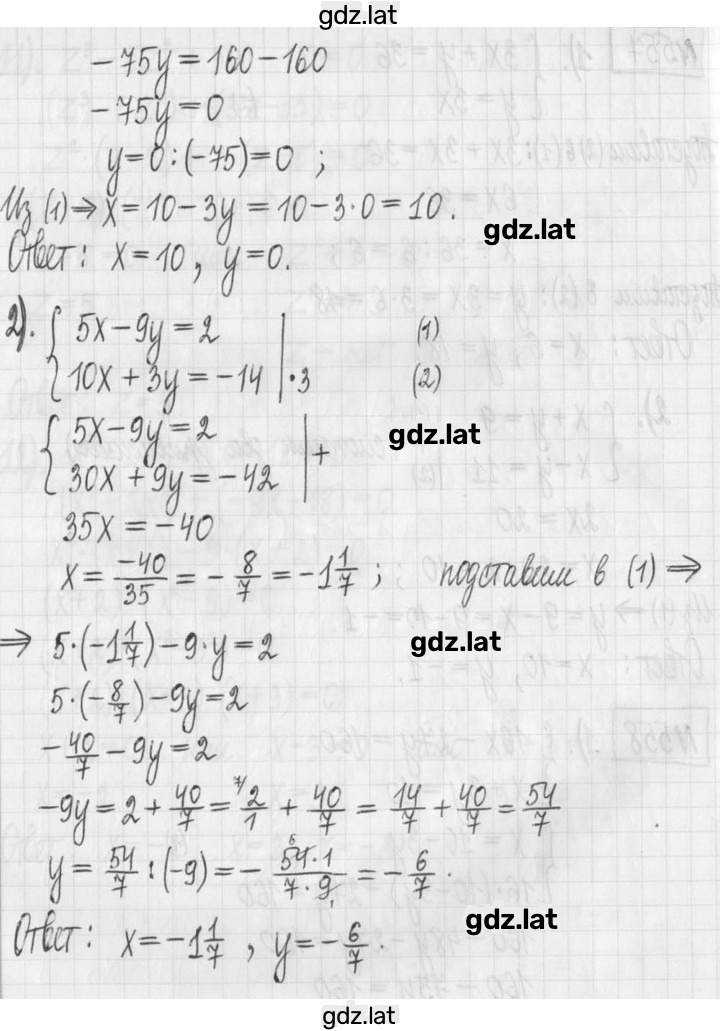 gdz.lat
-75y=160-160
-75y=0
y=0:(-75)=0 ;
Из (1)⇒x=10-3y=10-3·0=10.
gdz.lat
Ответ: x=10, y=0.
2). { 5x-9y=2 | (1)
{ 10x+3y=-14 | ·3 (2)
{ 5x-9y=2 |
gdz.lat
{ 30x+9y=-42 | +
35x=-40
x=-40/35=-8/7=-1 1/7 ; подставим в (1) ⇒
⇒ 5·(-1 1/7)-9·y=2
gdz.lat
5·(-8/7)-9y=2
-40/7-9y=2
-9y=2+40/7=7/ 2/1+40/7=14/7+40/7=54/7
y=54/7:(-9)=-54·1/7·9=-6/7.
gdz.lat
Ответ: x=-1 1/7, y=-6/7.
gdz.lat